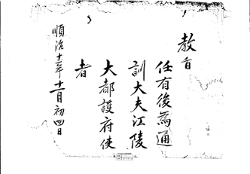 教旨
任有後爲通
訓大夫江陵
大都護府使
者
順治十二年十二月初四日